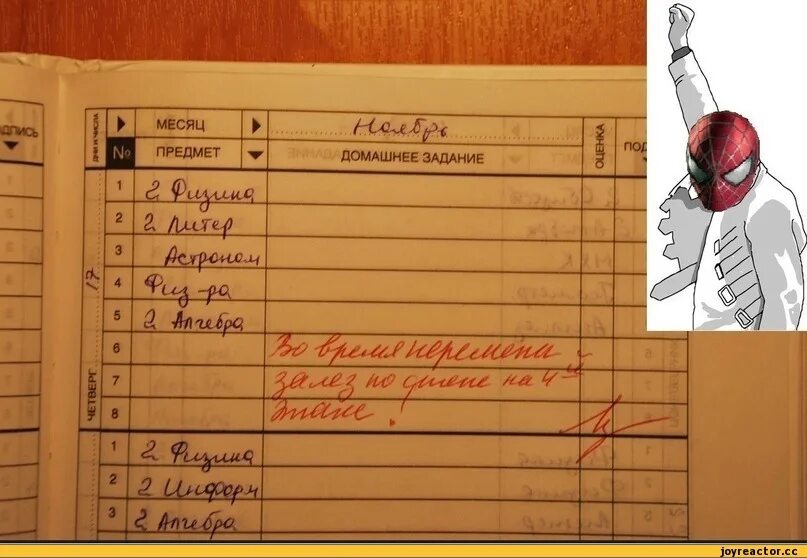 дпись
ДНИ И ЧИСЛА
МЕСЯЦ Ноябрь
№ ПРЕДМЕТ ДОМАШНЕЕ ЗАДАНИЕ ОЦЕНКА ПОД
17
1 2 Физика
2 2 Литер
3 Астроном
4 Физ-ра
5 2 Алгебра
ЧЕТВЕРГ
6 Во время перемены
7 залез по стене на 4ый
8 этаж!
1 2 Физика
2 2 Информ
3 2 Алгебра
joyreactor.cc